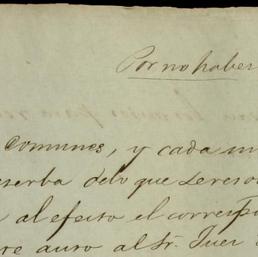 Por no haber
Comunes, y cada un
serba de lo que se reso
al efecto el corresp
re auro al Sr. Juez